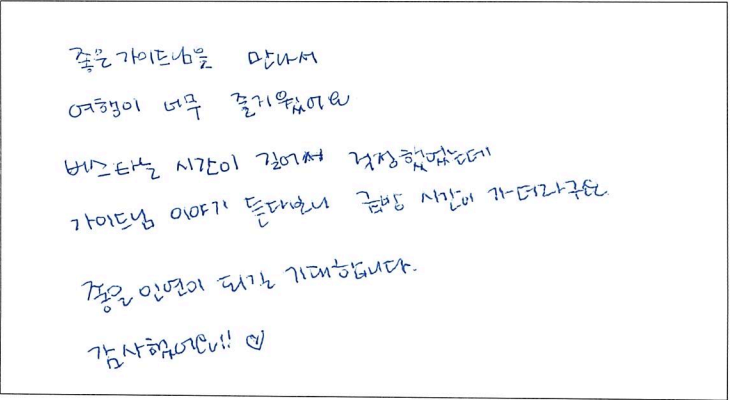 좋은 가이드님을 만나서
여행이 너무 즐거웠어요
버스타는 시간이 길어서 걱정했었는데
가이드님 이야기 듣다보니 금방 시간이 가더라구요
좋은 인연이 되길 기대합니다.
감사했어요!! ♡